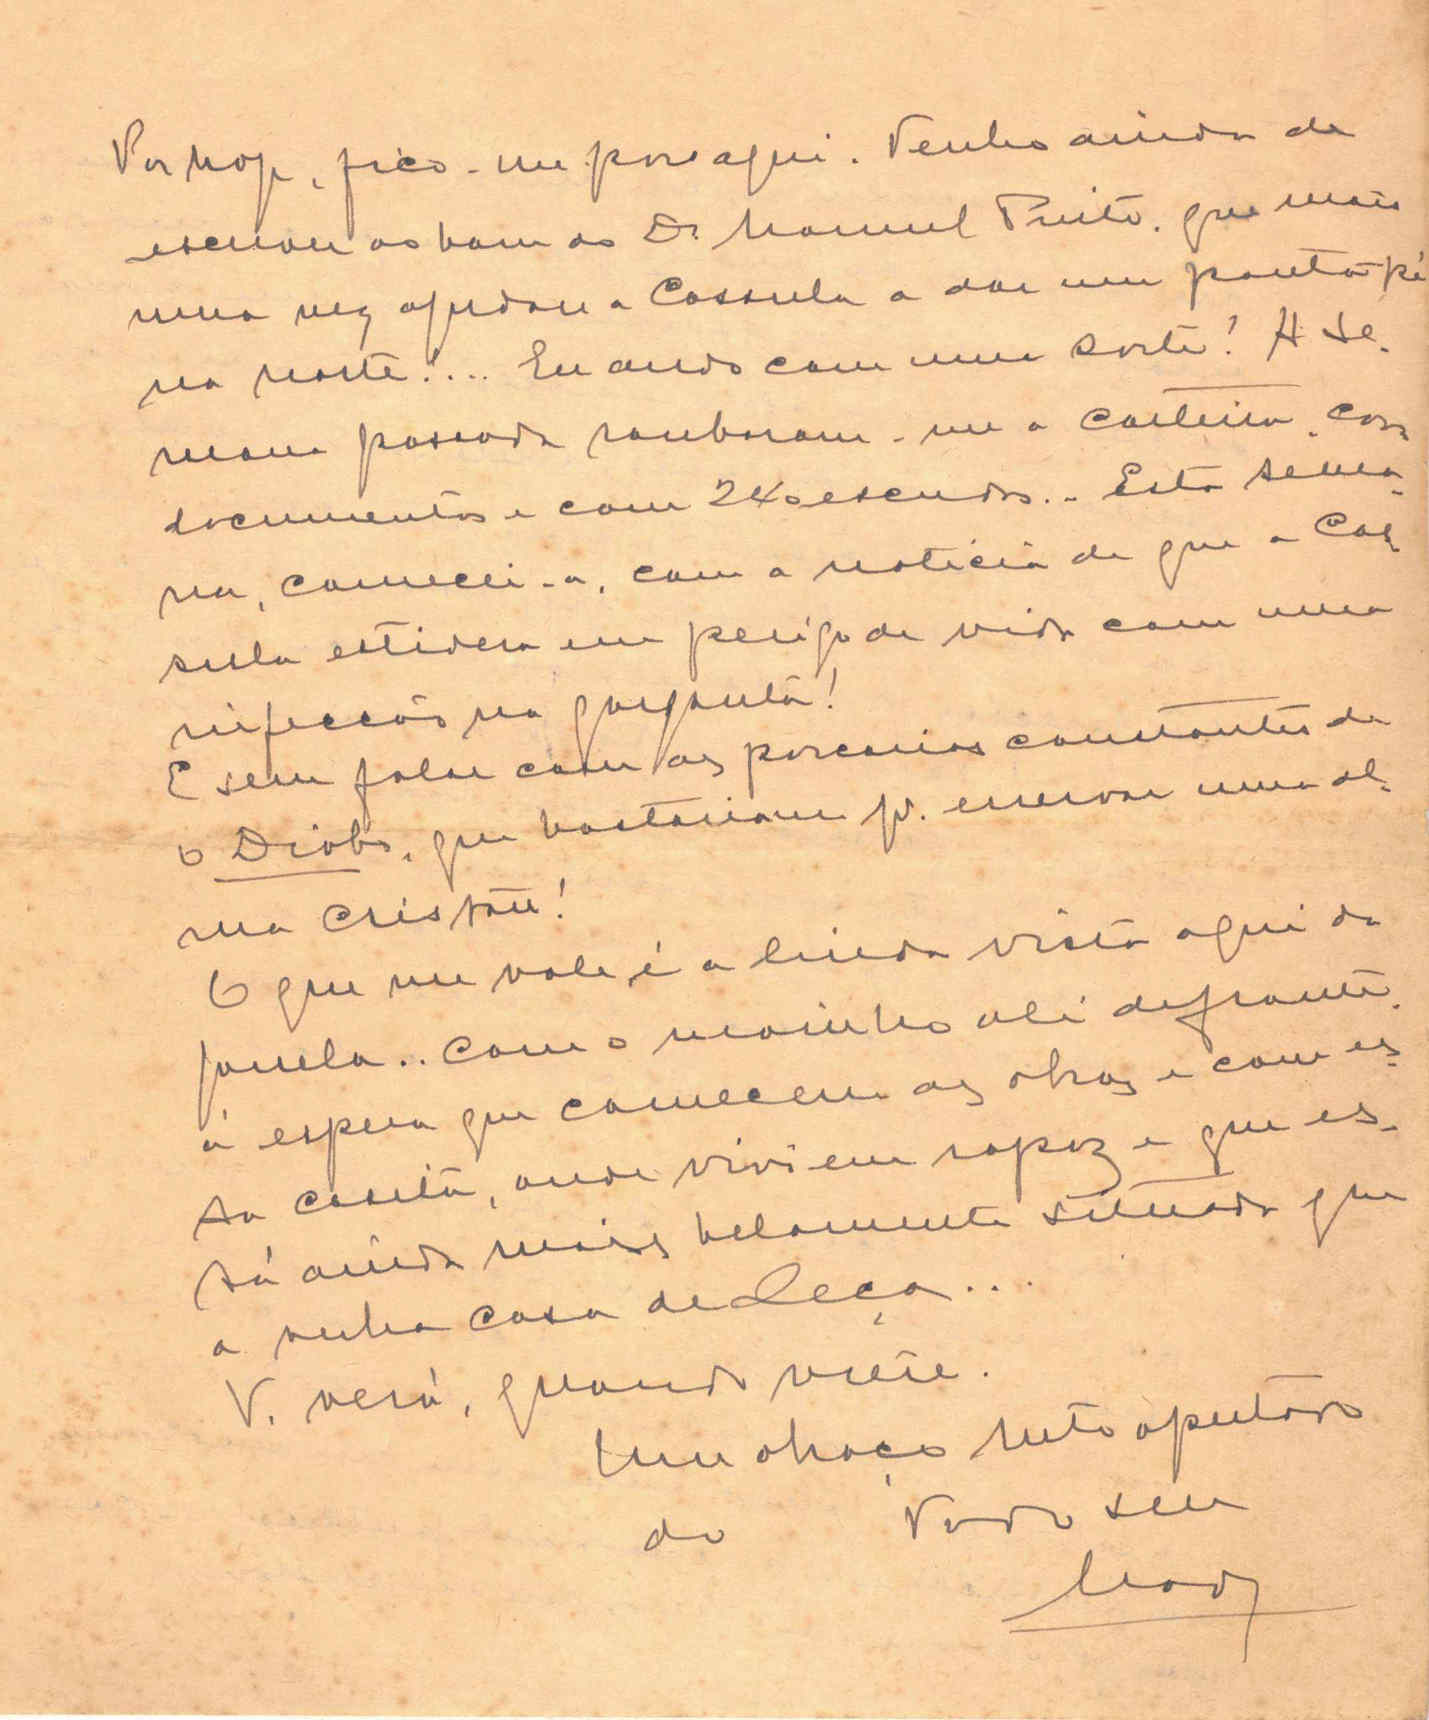 Por hoje, fico-me por aqui. Tenho ainda de
escrever ao bom do Dr. Manuel Pinto, que mais
uma vez ajudou a Cassula a dar um pontapé
na morte!... Eu ando com uma sorte! A se-
mana passada roubaram-me a carteira, com
documentos e com 240 escudos.. Esta sema-
na, comecei-a, com a notícia de que a Cas-
sula estivera em perigo de vida com uma
infecção na garganta!
E sem falar com as porcarias constantes de
o Diabo, que bastariam p. enervar uma al-
ma cristã!
O que me vale é a linda vista aqui da
janela.. com o moinho ali defronte,
á espera que comecem as obras e com es-
sa casita, onde vivi em rapaz e que es-
tá ainda mais belamente situada que
a minha casa de Leça...
V. verá, quando vier.
Um abraço mto apertado
do Todo seu